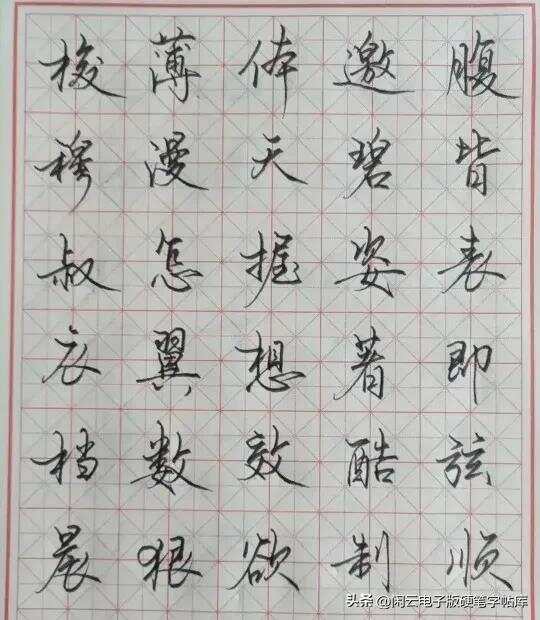 梭薄体邀腹
穆漫天碧皆
叔怎握姿表
衣翼想着即
档数效酷弦
晨狠欲制顺
头条 @闲云电子版硬笔字帖库